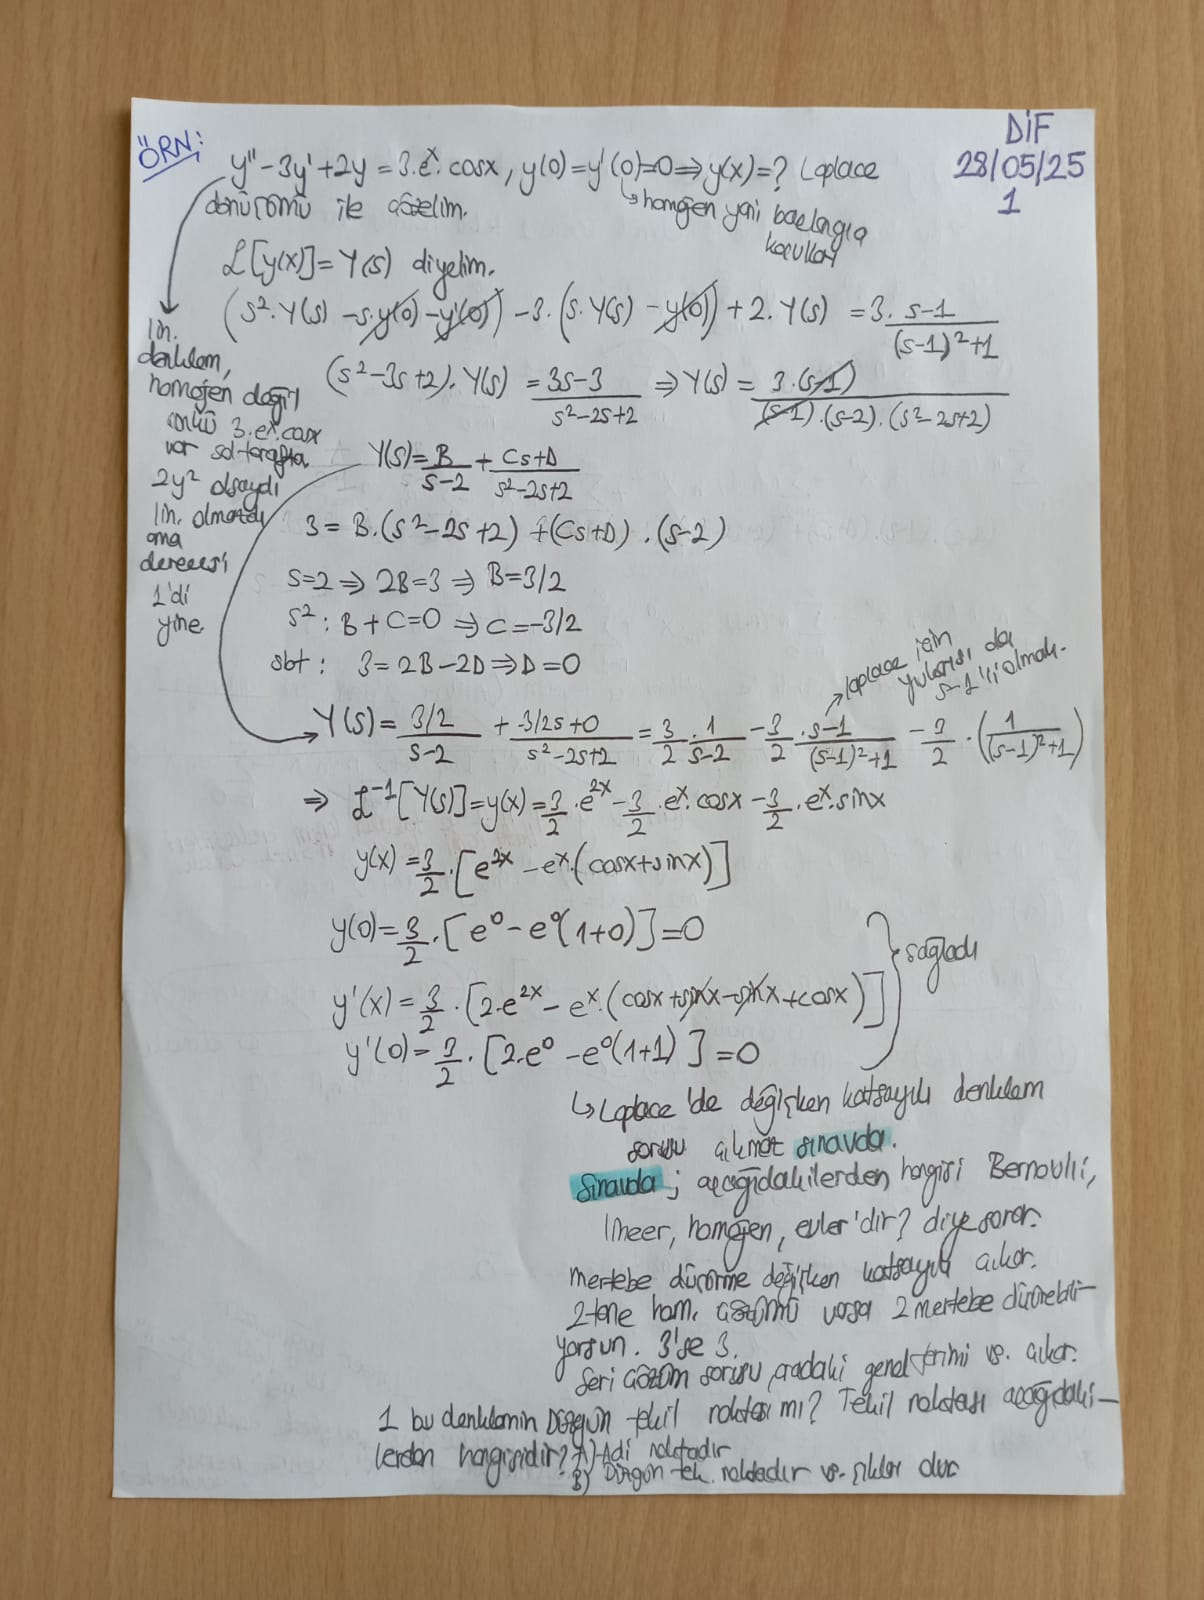 ÖRN:
DİF
28/05/25
1
y'' - 3y' + 2y = 3.e^x.cosx, y(0) = y'(0)=0 ⇒ y(x)=? Laplace
dönüşümü ile çözelim.
↳ homojen yani başlangıç
koşulları
L[y(x)] = Y(s) diyelim.
(s².Y(s) - s.y(0) - y'(0)) - 3.(s.Y(s) - y(0)) + 2.Y(s) = 3. s-1 / (s-1)²+1
(s²-3s+2).Y(s) = 3s-3 / s²-2s+2 ⇒ Y(s) = 3.(s-1) / (s-1).(s-2).(s²-2s+2)
lin.
denklem,
homojen değil
çünkü 3.e^x.cosx
var sol tarafta
2y² olsaydı
lin. olmazdı
ama
derecesi
1'di
yine
Y(s) = B / s-2 + Cs+D / s²-2s+2
3 = B.(s²-2s+2) + (Cs+D).(s-2)
s=2 ⇒ 2B=3 ⇒ B=3/2
s²: B+C=0 ⇒ C=-3/2
sbt: 3=2B-2D ⇒ D=0
↗ laplace için
yukarısı da
s-1'li olmalı.
Y(s) = 3/2 / s-2 + -3/2s+0 / s²-2s+2 = 3/2 . 1 / s-2 - 3/2 . s-1 / (s-1)²+1 - 3/2 . (1 / (s-1)²+1)
⇒ L⁻¹[Y(s)] = y(x) = 3/2 . e^2x - 3/2 . e^x.cosx - 3/2 . e^x.sinx
y(x) = 3/2 . [e^2x - e^x.(cosx+sinx)]
y(0) = 3/2 . [e⁰ - e⁰(1+0)] = 0
} sağladı
y'(x) = 3/2 . [2.e^2x - e^x.(cosx+sinx-sinx+cosx)]
y'(0) = 3/2 . [2.e⁰ - e⁰(1+1)] = 0
↳ Laplace'de değişken katsayılı denklem
sorusu çıkmaz sınavda.
Sınavda; aşağıdakilerden hangisi Bernoulli,
lineer, homojen, euler'dir? diye sorar.
mertebe düşürme değişken katsayılı çıkar.
2 tane hom. çözümü varsa 2 mertebe düşürebili-
yorsun. 3'se 3.
Seri çözüm sorusu, aradaki genel terimi vs. çıkar.
1 bu denklemin Düzgün tekil noktası mı? Tekil noktası aşağıdaki-
lerden hangisidir? A) Adi noktadır
B) Düzgün tek. noktadır vs. şıklar olur